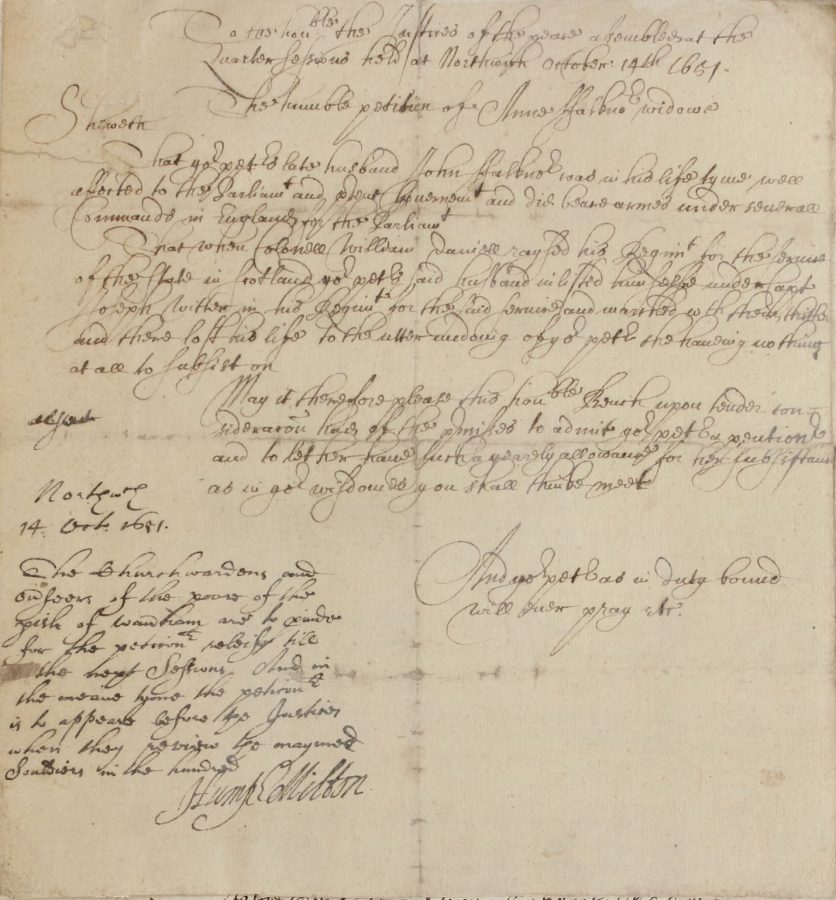 To the hon:ble the Justices of the peace assembled at the
Quarter Sessions held at Northwich October 14th 1651.
The humble petition of Anne ffalkner widowe
Sheweth
That yor petrs late husband John ffalkner was in his life tyme well
affected to the Parliamt and prsent Governemt and did beare armes under severall
Commands in England for the Parliamt
That when Colonell William Daniell raysed his Regimt for the service
of the State in Scotland yor petrs said husband inlisted him selfe under Capt
Joseph Witter in his Regimt for the said service and marched wth them thither
and there lost his life to the utter undoeing of yor petr she haveing nothing
at all to subsist on
May it therefore please this honble Bench upon tender con-
sideracon had of the prmises to admit yor petr a pentionr
and to let her have such a yearely allowance for her subsistance
as in yor wisdomes you shall thinke meet
And yor petr as in duty bound
will ever pray etc.
Northwch
14. Oct. 1651.
The Churchwardens and
ouseers of the poore of the
pish of are to pvide
for the peticonr releife till
the next Sessions And in
the meane tyme the peticonr
is to appeare before the Justices
when they review the maymed
Souldiers in the hundred